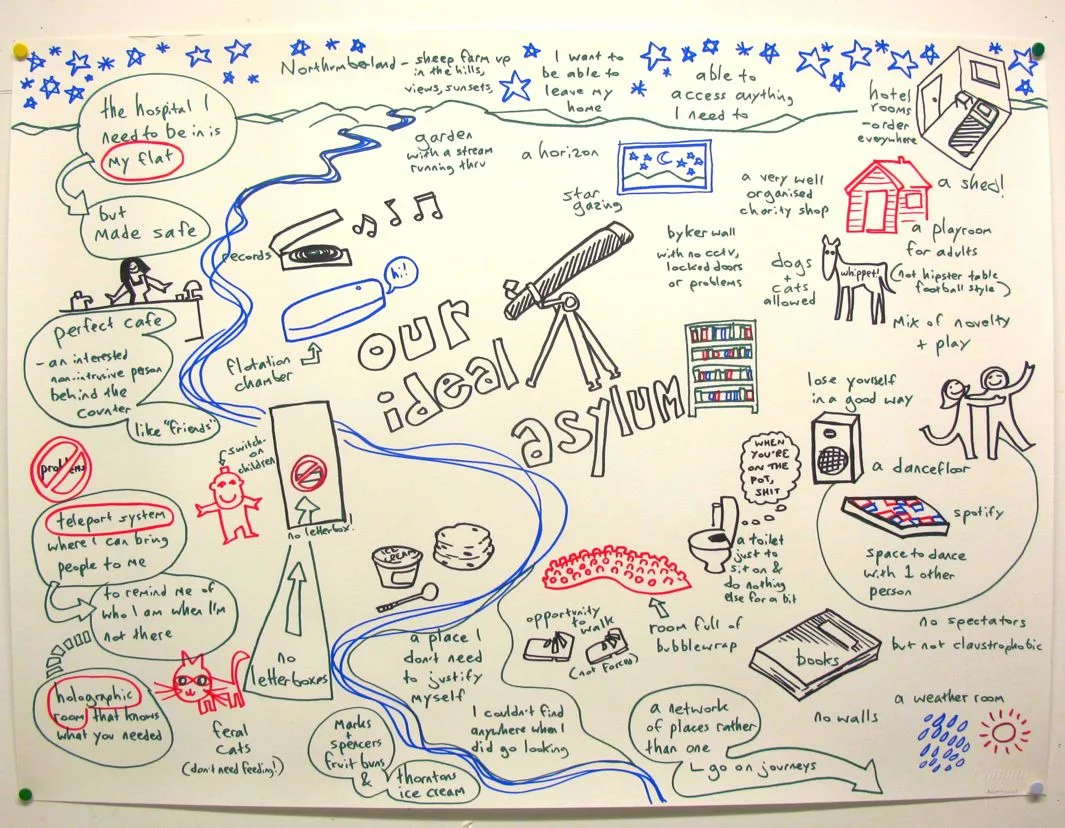 Northumberland - sheep farm up
in the hills,
views, sunsets
I want to
be able to
leave my
home
able to
access anything
I need to
hotel
rooms
- order
everywhere
the hospital I
need to be in is
my flat
but
made safe
garden
with a stream
running thru
a horizon
star
gazing
a very well
organised
charity shop
a shed!
a playroom
for adults
(not hipster table
football style)
mix of novelty
+ play
records
hi!
flotation
chamber
byker wall
with no cctv,
locked doors
or problems
dogs
+
cats
allowed
whippet!
our
ideal
asylum
perfect cafe
- an interested
non-intrusive person
behind the
counter
like "friends"
lose yourself
in a good way
a dancefloor
spotify
space to dance
with 1 other
person
no spectators
but not claustrophobic
problems
switch-
on
children
no letterbox!
no
letterboxes
teleport system
where I can bring
people to me
to remind me of
who I am when I'm
not there
holographic
room that knows
what you needed
feral
cats
(don't need feeding!)
ICE
CREAM
WHEN
YOU'RE
ON THE
POT,
SHIT
a toilet
just to
sit on &
do nothing
else for a bit
opportunity
to
walk
(not forced)
room full of
bubblewrap
books
a place I
don't need
to justify
myself
I couldn't find
anywhere when I
did go looking
Marks
+
spencers
fruit buns
&
thorntons
ice cream
a network
of places rather
than one
go on journeys
no walls
a weather room